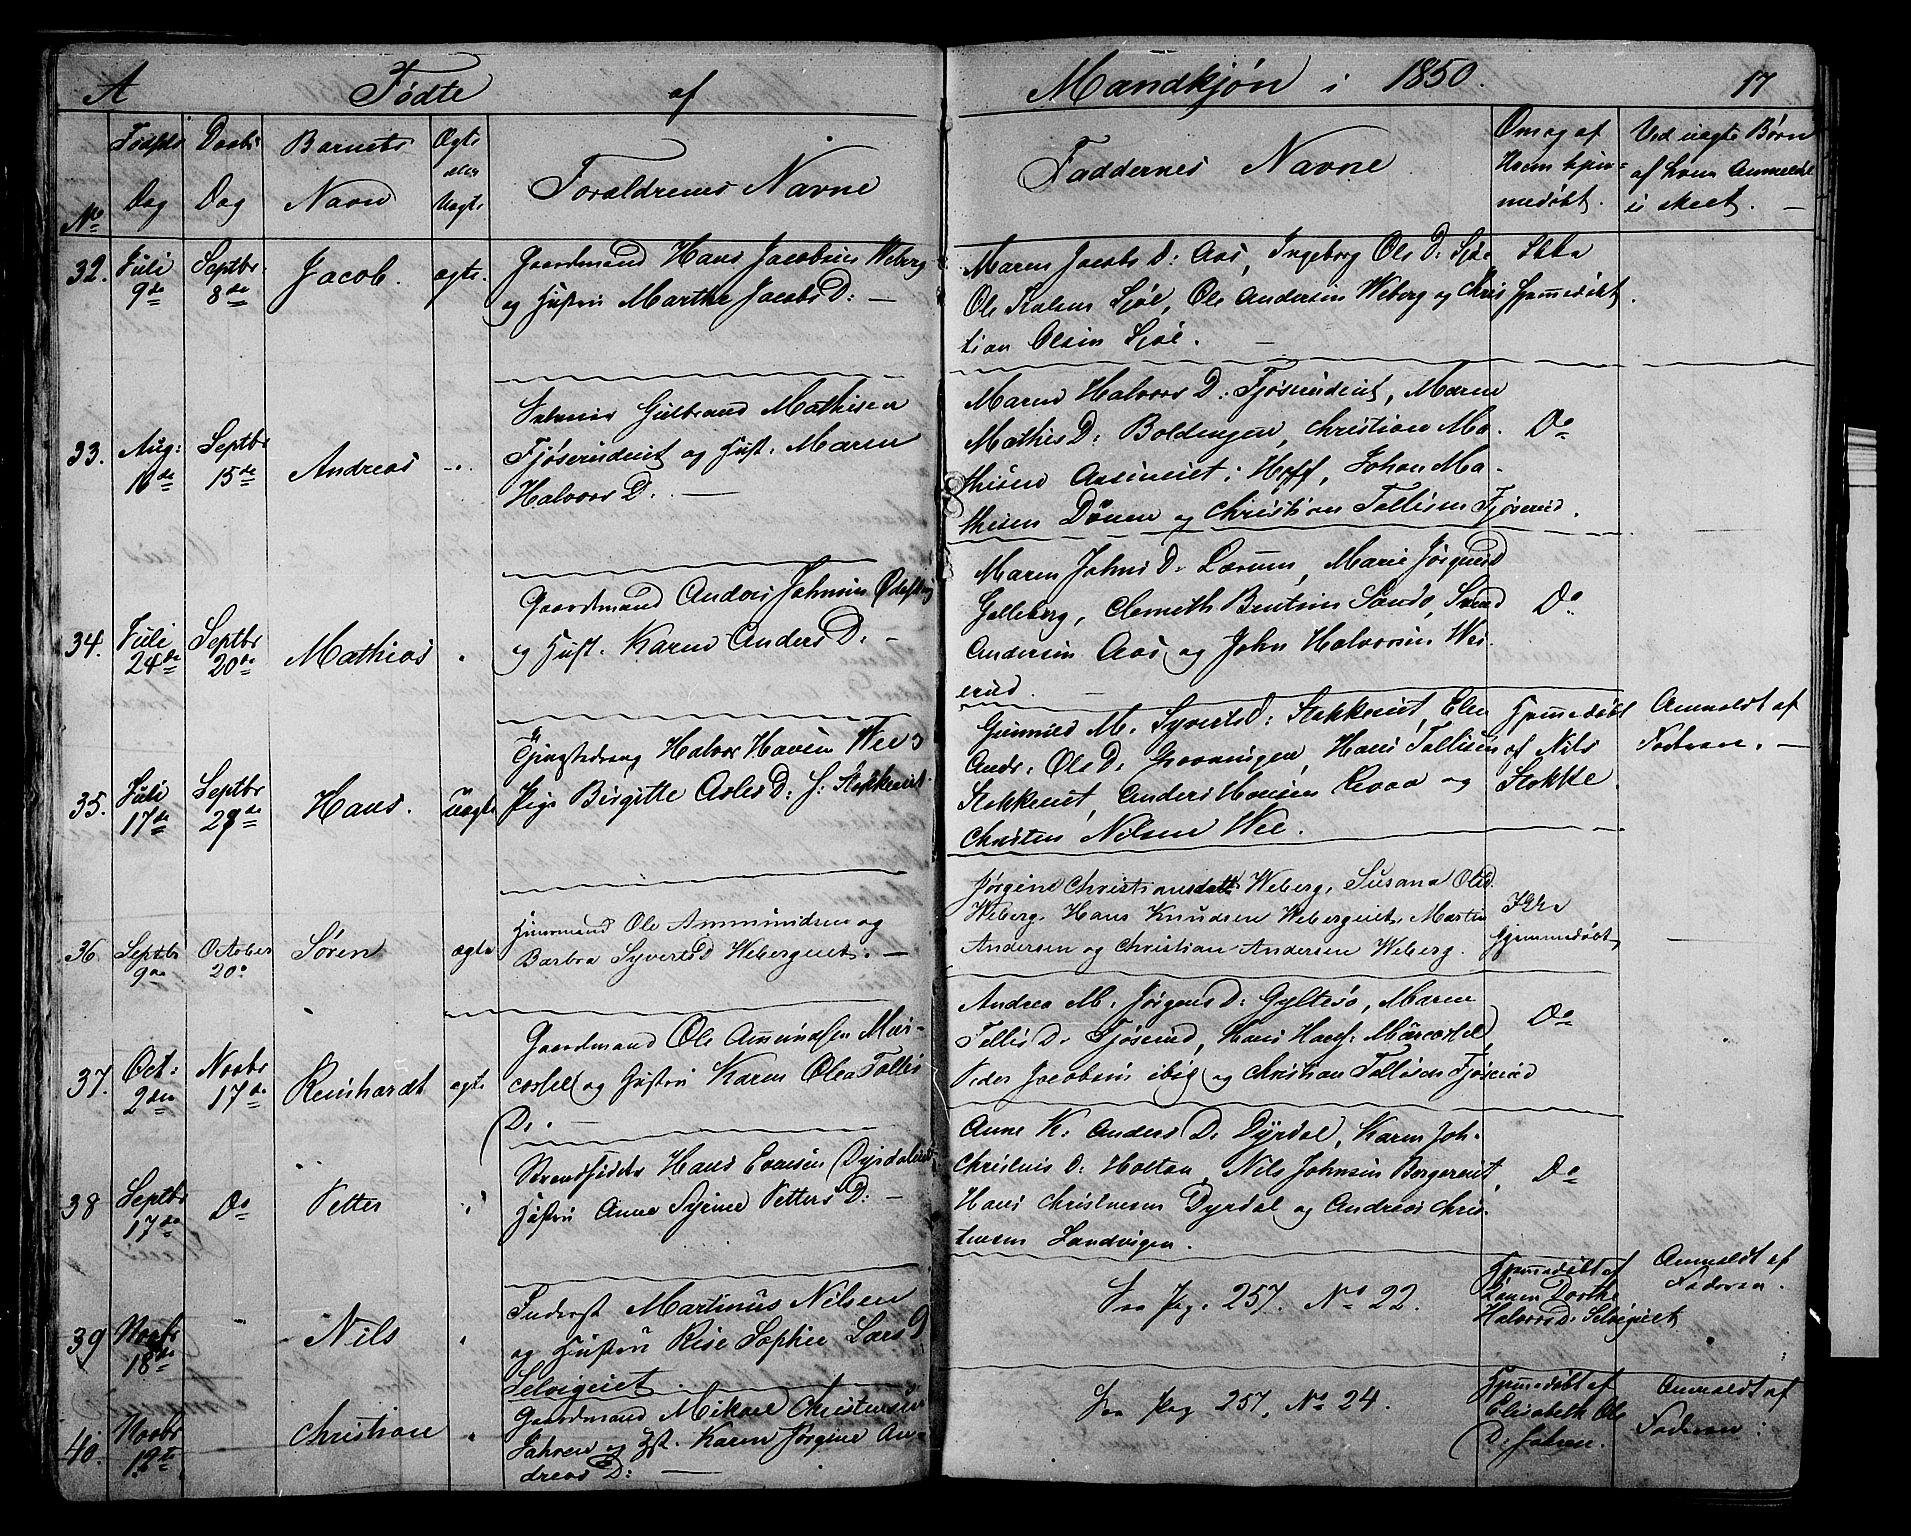 A Fødte af Mandkjøn i 1850. 17
No Fødsels Dag Daabs Dag Barnets Navn Ægte eller Uægte Forældrenes Navne Faddernes Navne Om og af Hvem hjemmedøbt. Ved uægte Børn af hvem Anmeldelse er skeet. —
32. Juli 9de Septbr 8de Jacob. ægte.
Gaardmand Hans Jacobsen Weberg
og Hustru Marthe Jacobs D: —
Maren Jacobs D: Aas, Ingeborg Ols D: Sjøe
Ole Sjøl, Ole Andersen Weberg og Chris
tian Olsen Sjøl. —
Ikke
hjemmedøbt.
33. Aug: 16de Septbr 15de Andreas
Gulbrand Mathisen
Fjøserudeiet og Hust. Maren
Halvors D. —
Maren Halvors D: Fjøserudeiet, Maren
Mathis D: Boldingen, Christian Ma-
thisen i Hoff, Johan Ma-
thisen Dönen og Christian Tollisen Fjøserud.
Do
34. Juli 24de Septbr 20de Mathias
Gaardmand Anders Johnsen
og Hust. Karen Anders D: —
Maren Johns D. Lærum, Marie Jørgens D
Gelleberg, Clemeth Bentsen Sando, Svend
Andersen Aas og John Halvorsen Wes-
erud.
Do
35. Juli 17de Septbr 29de Hans. uægte
Halvor Hansen Wee og
Pige Birgitte Asles D. f: Stokkeeiet
Gunnild M. Syverts D: Stokkeeiet, Elen
Andr: Ols D: Grønningen, Hans Tollisen
Stokkeeiet, Anders Hansen og
Christen Nilsen Wee.
Hjemmedøbt
af Nils
Stokke.
Anmeldt af
Faderen. —
36. Septbr 9de October 20de Søren ægte
Huusmand Ole Ammundsen og
Barbra Syverts D Webergeiet. —
Jørgine Christiansdatter Weberg, Susana Ols D.
Weberg, Hans Knudsen Webergeiet, Martin
Andersen og Christian Andersen Weberg.
Ikke
hjemmedøbt
—
37. Oct: 2den Novbr 17de Reinhardt ægte
Gaardmand Ole Amundsen Mar-
costel og Hustru Karen Olea Tollis
D: —
Andrea M. Jørgens D: Gyltesø, Maren
Tollis D. Fjøserud, Hans Marcostel,
Peder Jacobsen ibid og Christian Tollisen Fjøserud
Do
38 Septbr 17de Do Petter
Strandsidder Hans Evensen Dyrdaleiet
Hustru Anne Petters D. —
Anne K. Anders D. Dyrdal, Karen Joh.
Christens D: Holtan, Nils Johnsen Borgereiet,
Hans Christensen Dyrdal og Andreas Chris-
tensen Sandvigen.
Do
39 Novbr 18de Nils
Inderst Martinus Nilsen
og Hustru Sophie Lars D
Selvigeiet.
Saa Pag. 257. No 22.
Hjemmedøbt af
Dorthe
Halvors D. Selvigeiet
Anmeldt af
Faderen.
40. Novbr 12te Christian
Gaardmand Mikael Christensen
Jahren og Hst. Karen Jørgine An-
dreas D: —
Saa Pag 257. No 24.
Hjemmedøbt af
Elisabeth Ols
D: Jahren.
Anmeldt af
Faderen: